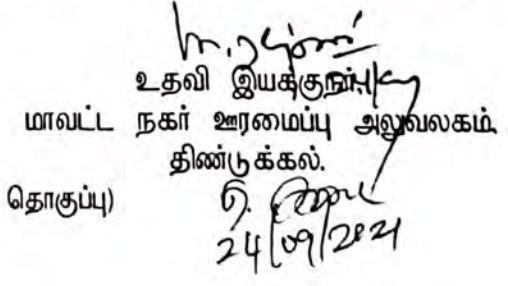 உதவி இயக்குநர்,
மாவட்ட நகர் ஊரமைப்பு அலுவலகம்.
திண்டுக்கல்.
தொகுப்பு)
24/09/2021